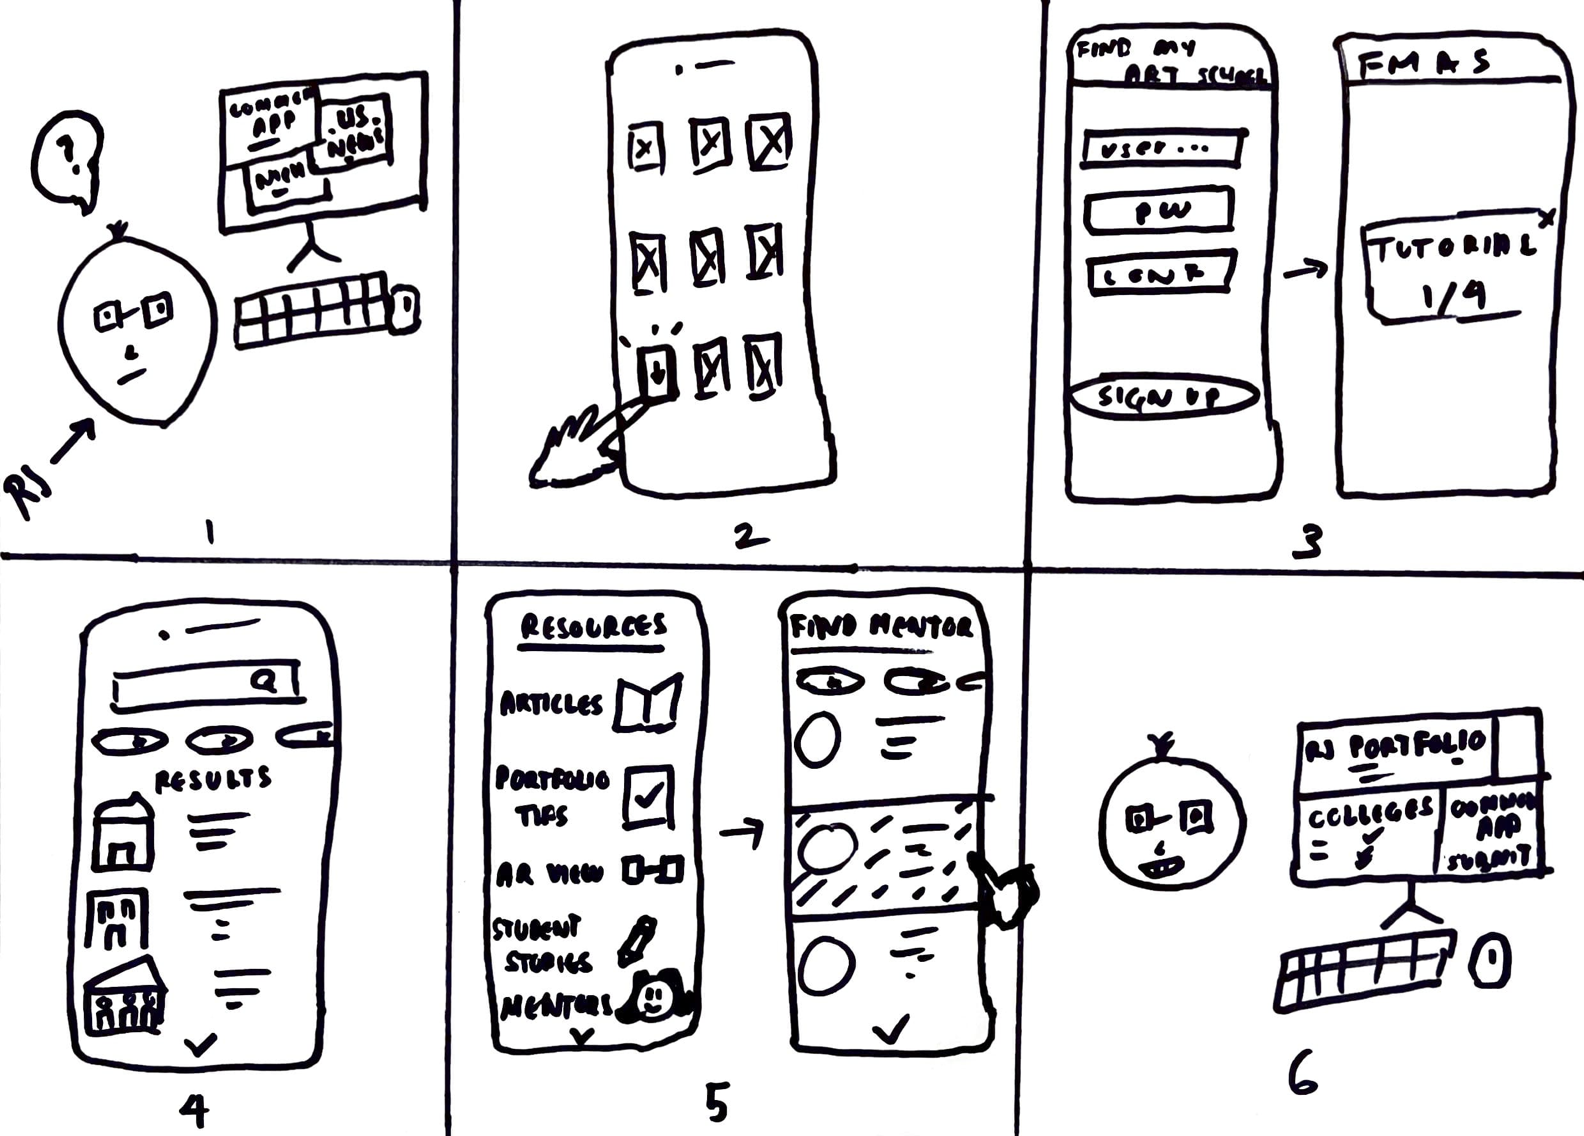 ?
COMMON
APP
U.S.
NEWS
RJ
1
2
FIND MY
ART SCHOOL
USER...
PW
SIGN UP
FMAS
TUTORIAL
X
1/4
3
RESULTS
4
RESOURCES
ARTICLES
PORTFOLIO
TIPS
AR VIEW
STUDENT
STORIES
MENTORS
FIND MENTOR
5
RJ PORTFOLIO
COLLEGES
COMMON
APP
SUBMIT
6